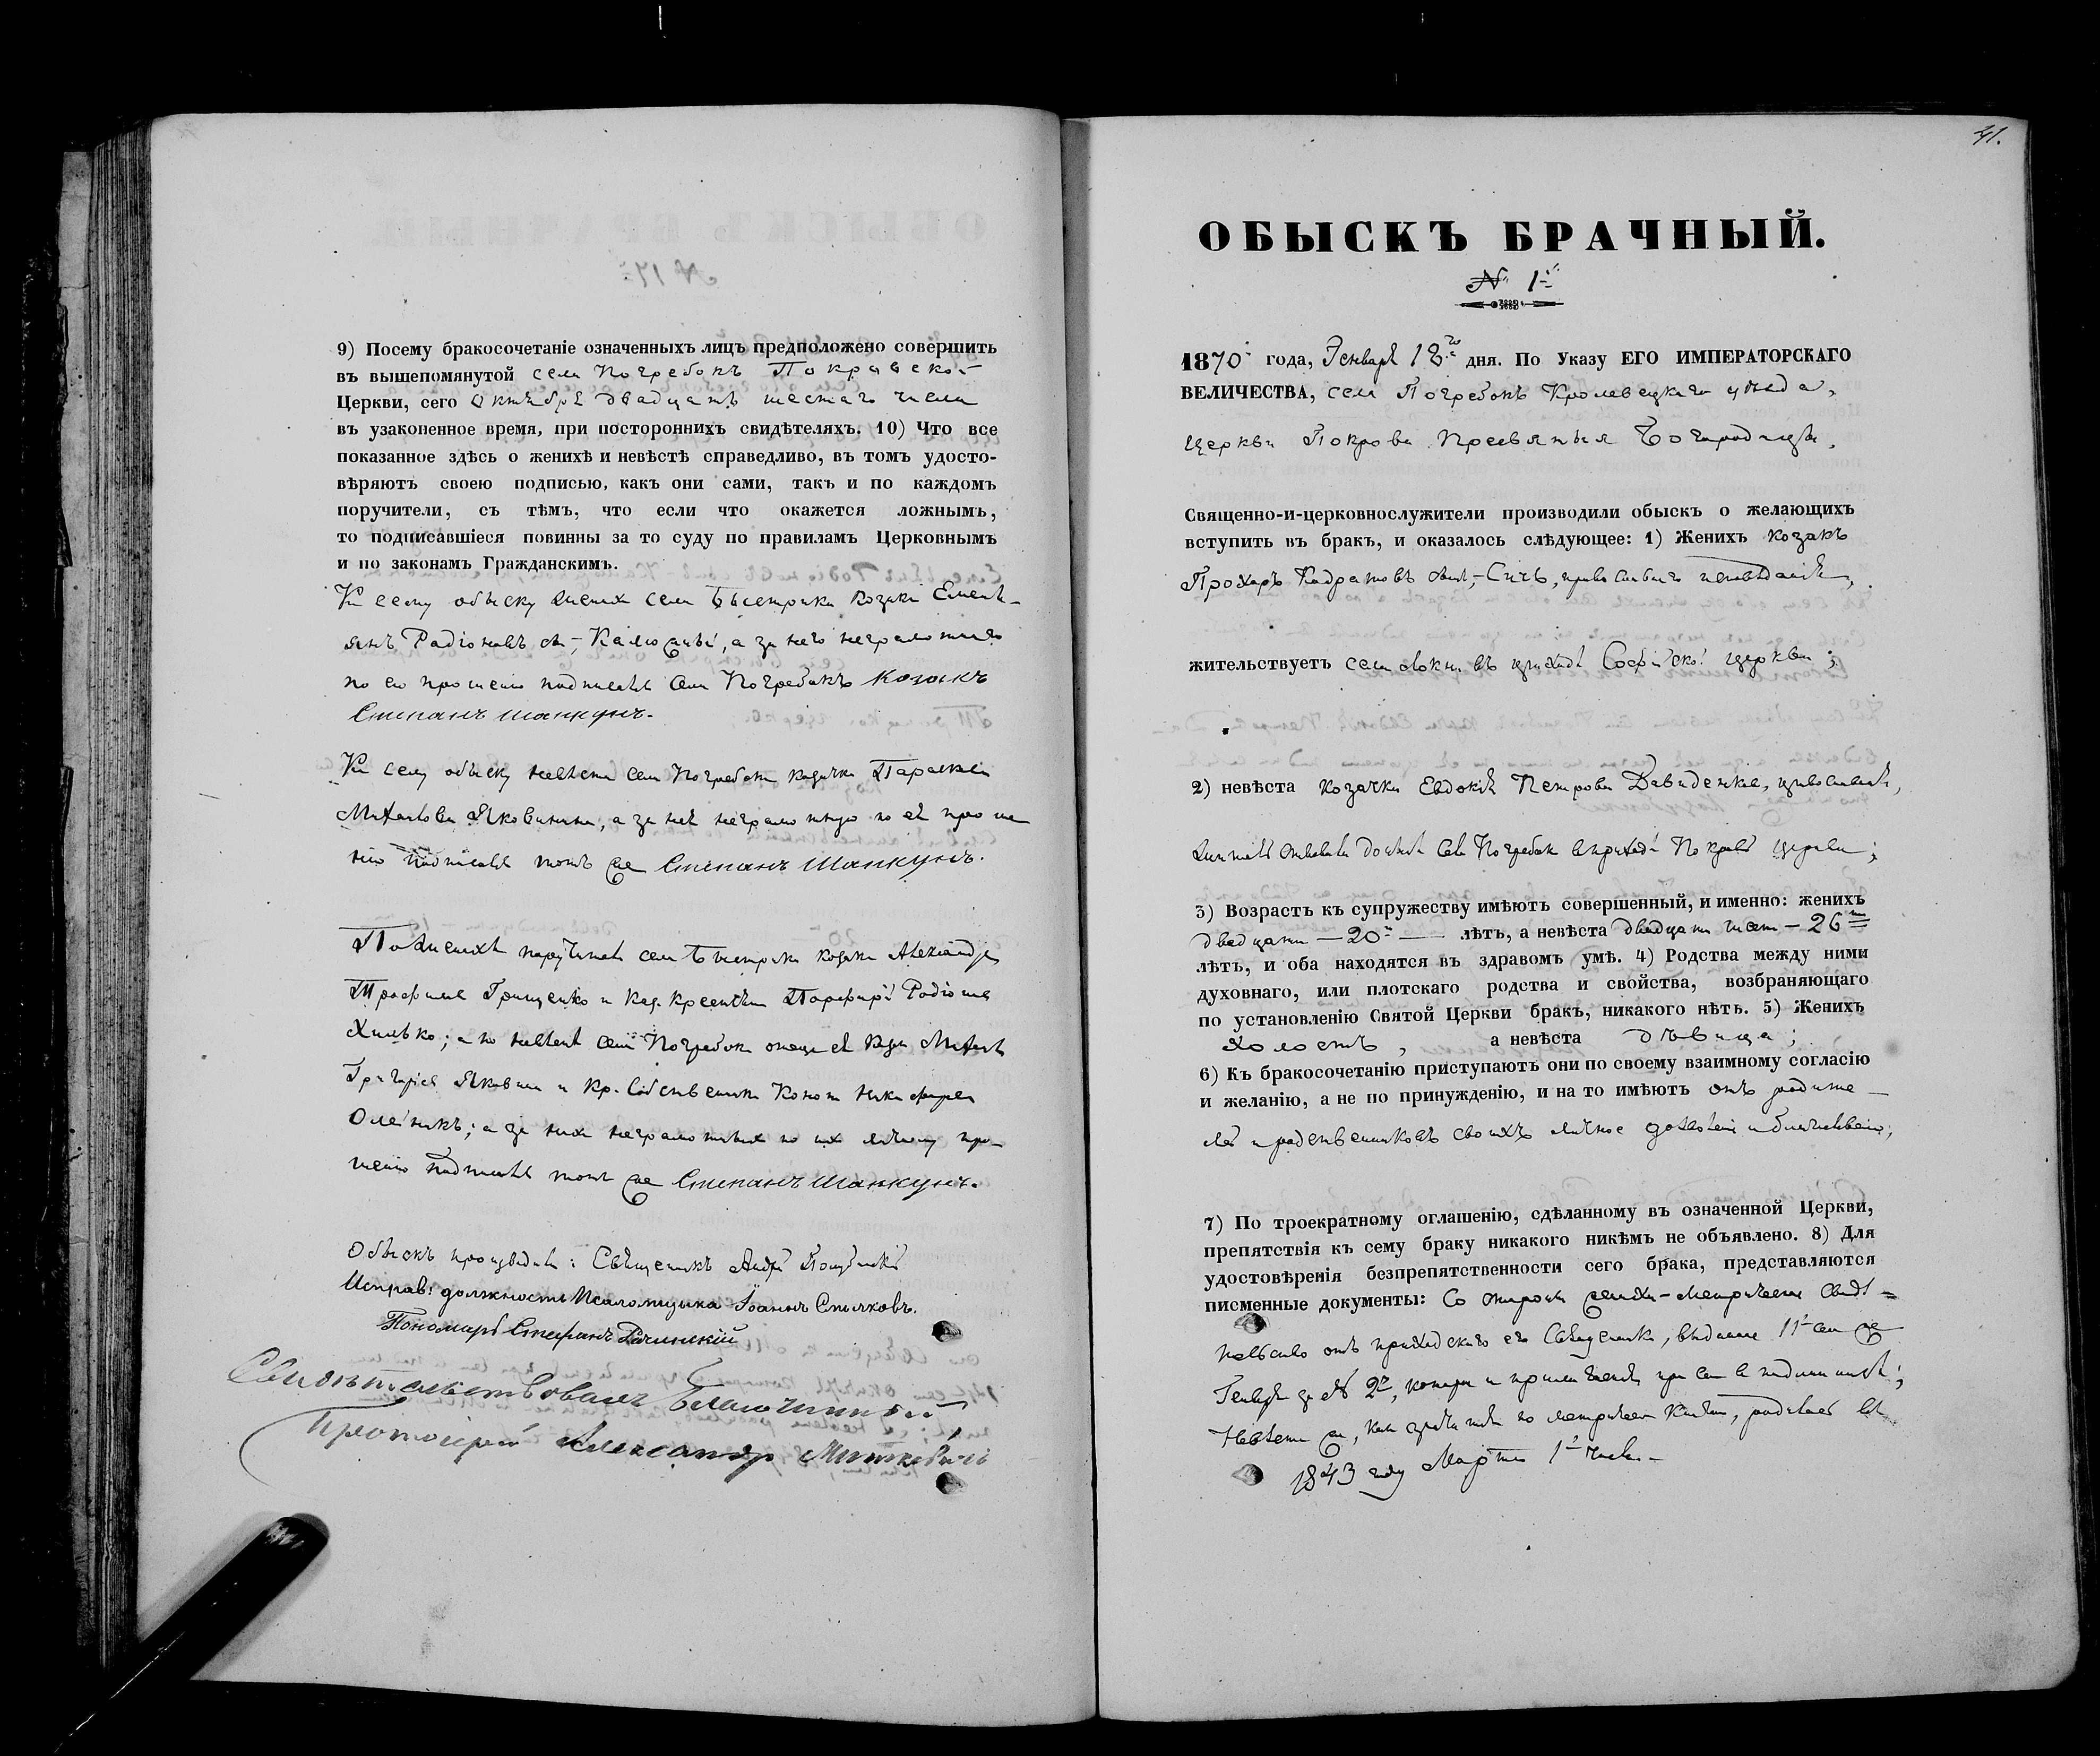 9) Посему бракосочетаніе означенныхъ лицъ предположено совершить
въ вышепомянутой села Погребокъ Покровской
Церкви, сего Октября двадцать шестаго числа
въ узаконенное время, при постороннихъ свидѣтеляхъ. 10) Что все
показанное здѣсь о женихѣ и невѣстѣ справедливо, въ томъ удосто-
вѣряютъ своею подписью, какъ они сами, такъ и по каждомъ
поручители, съ тѣмъ, что если что окажется ложнымъ,
то подписавшіеся повинны за то суду по правиламъ Церковнымъ
и по законамъ Гражданскимъ.
Къ сему обыску женихъ села Быстрика козакъ Емель-
янъ Радіоновъ а за него неграмотнаго
по его прошенію подписался села Погребокъ Козакъ
Степанъ Шапкунъ.
Къ сему обыску невѣста села Погребокъ козачка Параскева
Михайлова Яковинина, а за неё неграмотную по её проше
нію подписался тотъ же Степанъ Шапкунъ.
По женихѣ поручители села Быстрика козаки Александръ
Трофимовъ Грищенко и Порфирій Радіоновъ
Хилько; а по невѣстѣ села Погребокъ отецъ её Михаилъ
Григорьевъ Яковина и Кр. Собственникъ Кононъ Никифоровъ
Олейникъ; а за нихъ неграмотныхъ по ихъ личному про-
шенію подписался тотъ же Степанъ Шапкунъ.
Обыскъ производили: Священникъ Андрей
Исправ: должность Псаломщика Іоаннъ Спычковъ.
Пономарь Стефанъ
Свидѣтельствовалъ Благочинный
Протоіерей Александръ Миткевичъ
41.
ОБЫСКЪ БРАЧНЫЙ.
№ 1й
1870 года, Января 18го дня. По Указу ЕГО ИМПЕРАТОРСКАГО
ВЕЛИЧЕСТВА, села Погребокъ Кролевецкаго уѣзда,
Церкви Покрова Пресвятыя Богородицы,
Священно-и-церковнослужители производили обыскъ о желающихъ
вступить въ бракъ, и оказалось слѣдующее: 1) Женихъ козакъ
Прохоръ Кадратовъ Сичъ, православнаго исповѣданія,
жительствуетъ села въ приходѣ Софійской церкви;
2) невѣста козачка Евдокія Петрова Давиденкова, православная,
жительствовала донынѣ села Погребокъ въ приходѣ Покров церкви;
3) Возрастъ къ супружеству имѣютъ совершенный, и именно: женихъ
двадцати — 20ти — лѣтъ, а невѣста двадцати шести — 26ти
лѣтъ, и оба находятся въ здравомъ умѣ. 4) Родства между ними
духовнаго, или плотскаго родства и свойства, возбраняющаго
по установленію Святой Церкви бракъ, никакого нѣтъ. 5) Женихъ
холостъ, а невѣста дѣвица;
6) Къ бракосочетанію приступаютъ они по своему взаимному согласію
и желанію, а не по принужденію, и на то имѣютъ отъ родите-
лей и родственниковъ своихъ личное дозволеніе и благословеніе;
7) По троекратному оглашенію, сдѣланному въ означенной Церкви,
препятствія къ сему браку никакого никѣмъ не объявлено. 8) Для
удостовѣренія безпрепятственности сего брака, представляются
писменные документы: Со стороны жениха - метрическое свидѣ-
тельство отъ приходскаго его Священника, выданное 11го сего же
Генваря за № 2м, которое и при семъ въ подлинникѣ;
Невѣста же, какъ значится по метрической книгѣ, родилась въ
1843 году Марта 1го числа.